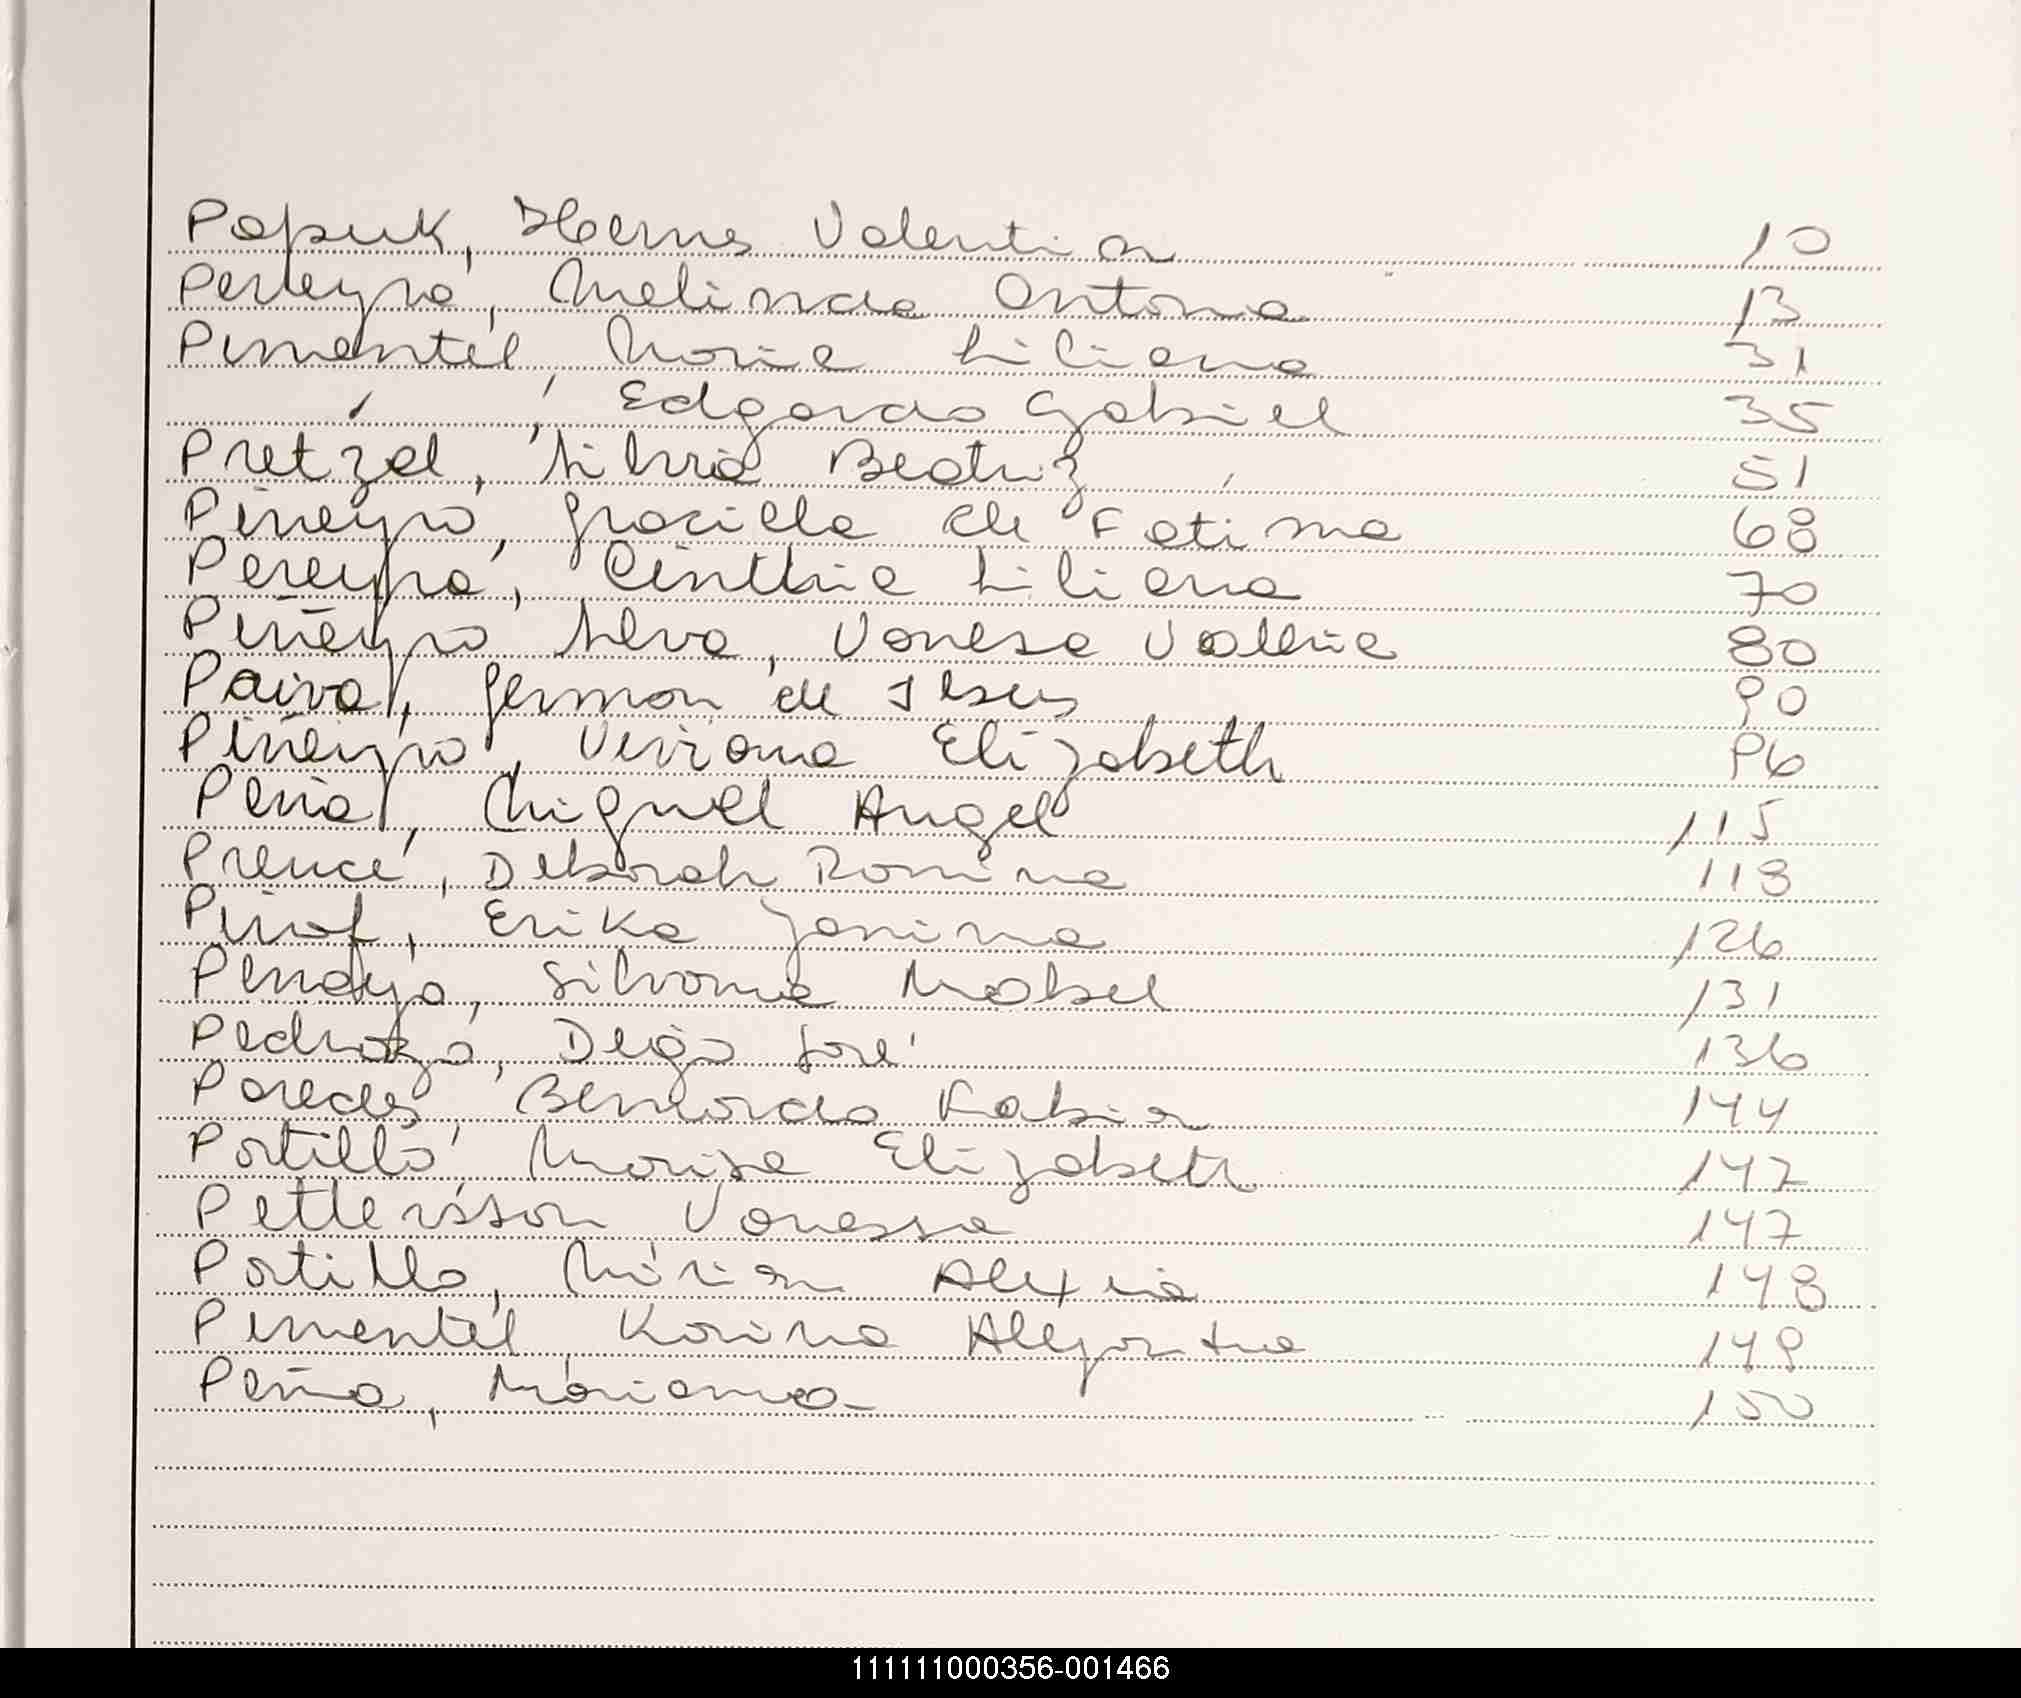 Papuk, Hernes Valentin 10
Pereyra, Melinda Antonia 13
Pimentel, Maria Liliana 31
" , Edgardo Gabriel 35
Pretzel, Silvia Beatriz 51
Piñeyro, Graciela de Fatima 68
Pereyra, Cinthia Liliana 70
Piñeyro Silva, Vanesa Valeria 80
Paiva, German de Jesus 90
Piñeyro, Viviana Elizabeth 96
Peña, Miguel Angel 115
Prence, Deborah Romina 118
Erika Janina 126
Penayo, Silvana Mabel 131
Pedrozo, Diego José 136
Paredes, Bernardo Fabian 144
Portillo, Marisa Elizabeth 147
Pettersson Vanessa 147
Portillo, Mirian Alexia 148
Pimentel, Karina Alejandra 149
Peña, Mariana 150
111111000356-001466